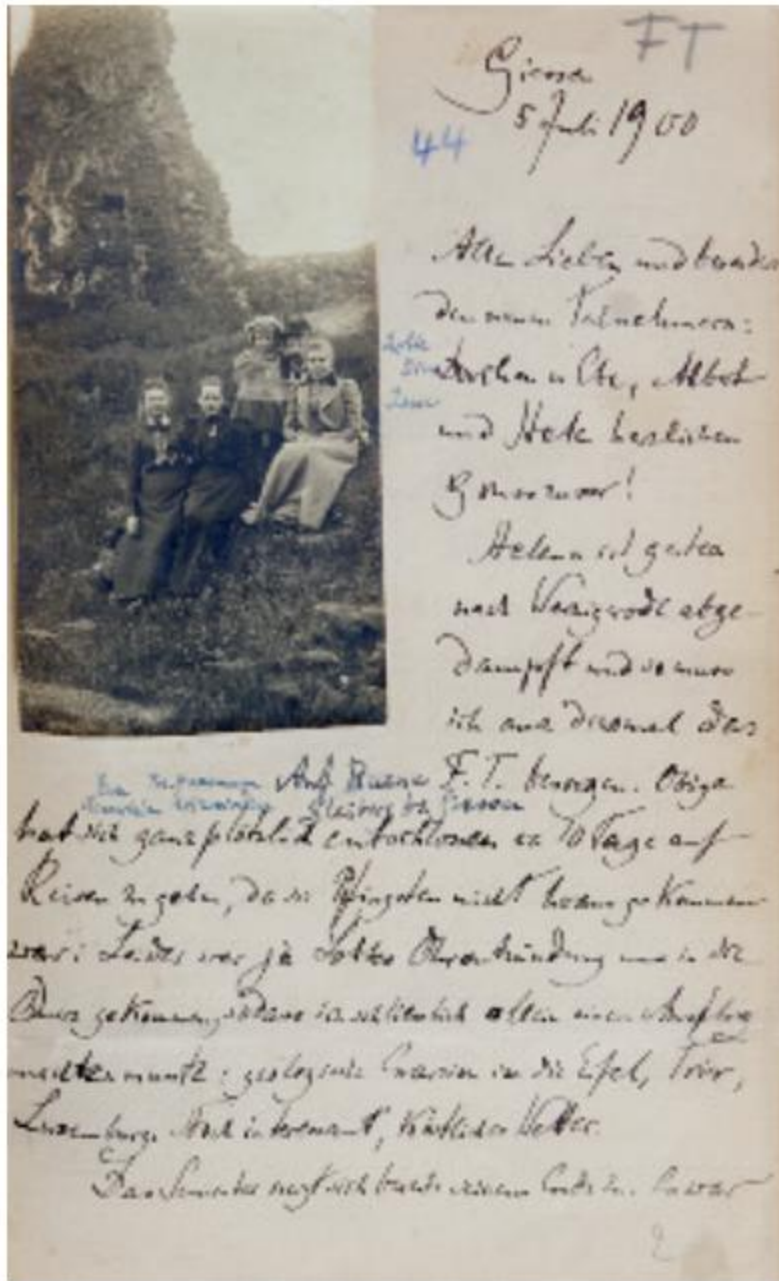 FT
Giessen
5 Juli 1900
44
Allen Lieben und besonders
den neuen Teilnehmern:
und Ute, Albert
und Hete herzlichen
Helene ist gestern
nach Wernigerode abge-
dampft und so muss
ich aus diesmal das
Auf Ruine F.T. besorgen. Obige
Gleiberg bei Giessen
hat sich ganz plötzlich entschlossen ca 10 Tage auf
Reisen zu gehen, da sie Pfingsten nicht herausgekommen
war: Leider war ja Lottes Ohrentzündung uns in die
Quere gekommen, sodass ich schliesslich allein einen Ausflug
machen musste: geologische Exkursion in die Eifel, Trier,
Luxemburg. Hoch interessant, köstliches Wetter.
Das Semester neigt sich bereits seinem Ende zu. Es war
2